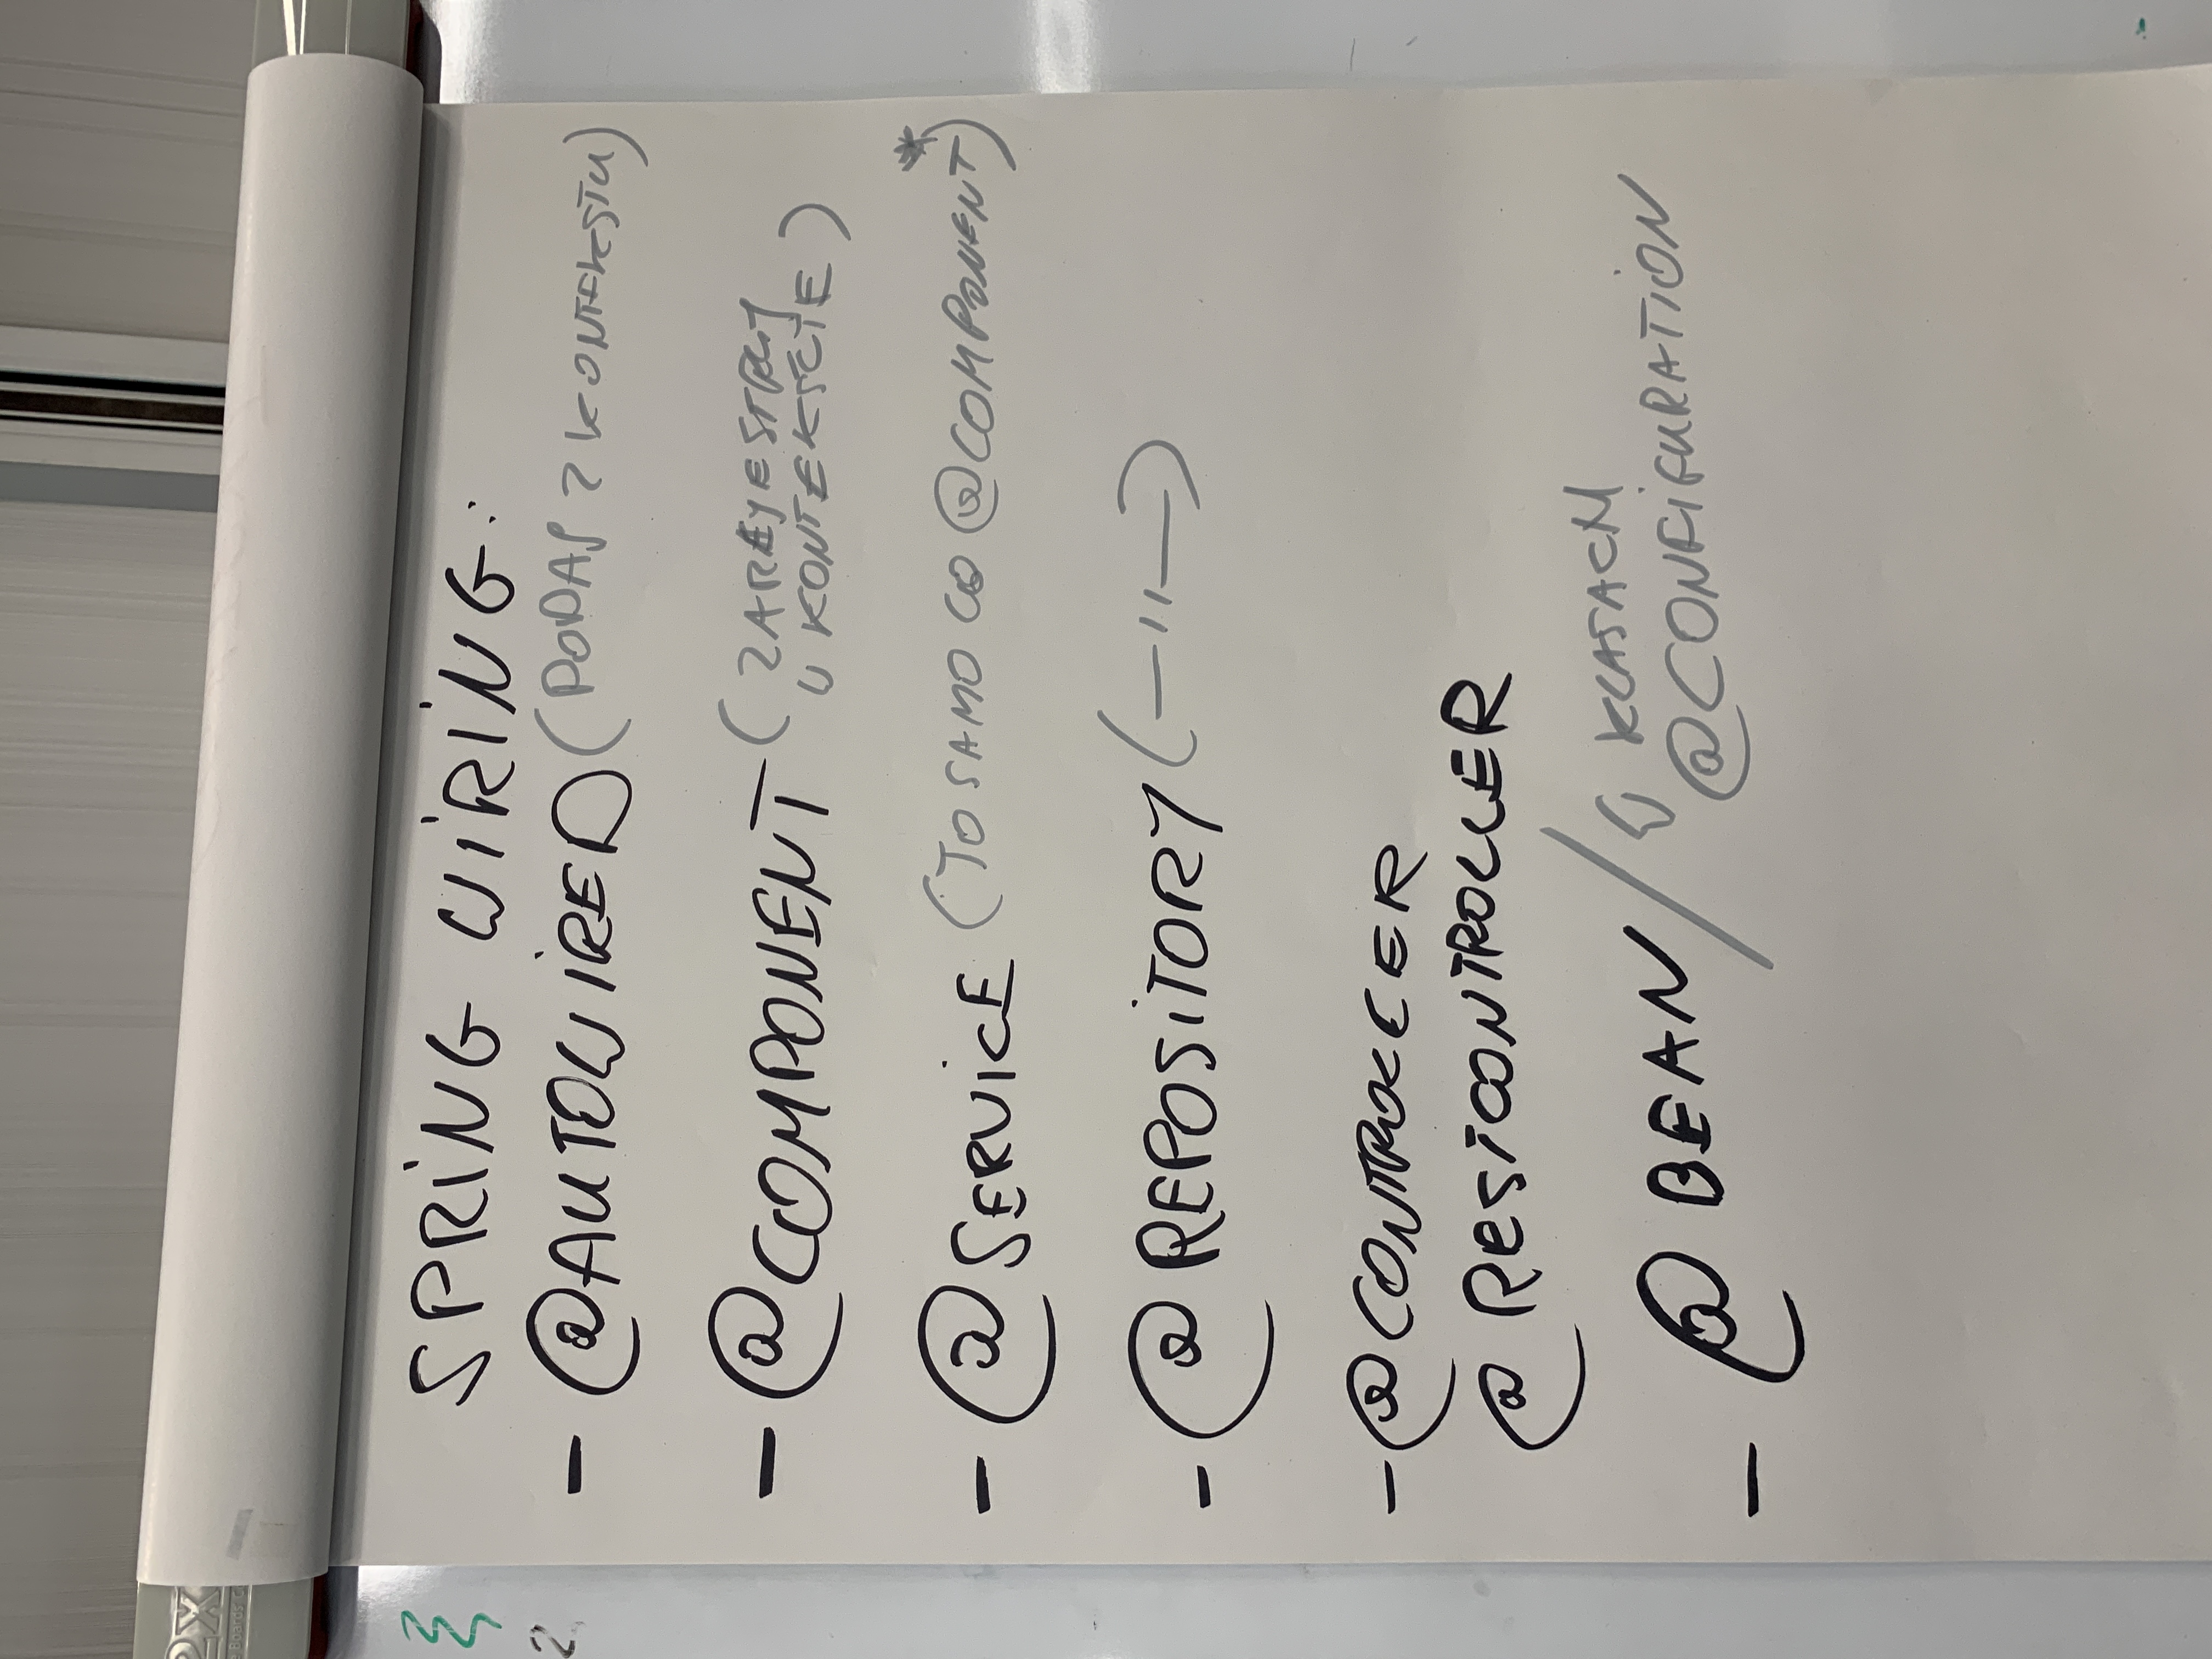 2x
e Boards C
SPRING WIRING:
- @AUTOWIRED (PODAJ Z KONTEKSTU)
- @COMPONENT (ZAREJESTRUJ
W KONTEKŚCIE)
- @SERVICE (TO SAMO CO @COMPONENT*)
- @REPOSITORY (—"—)
- @CONTROLLER
@RESTCONTROLLER
- @BEAN / W KLASACH
@CONFIGURATION
2.